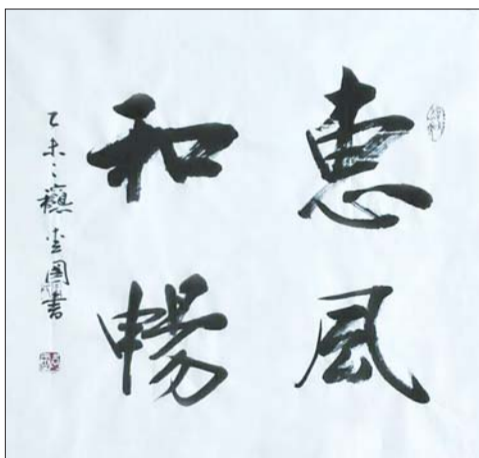 惠風
和暢
乙未之龝國書